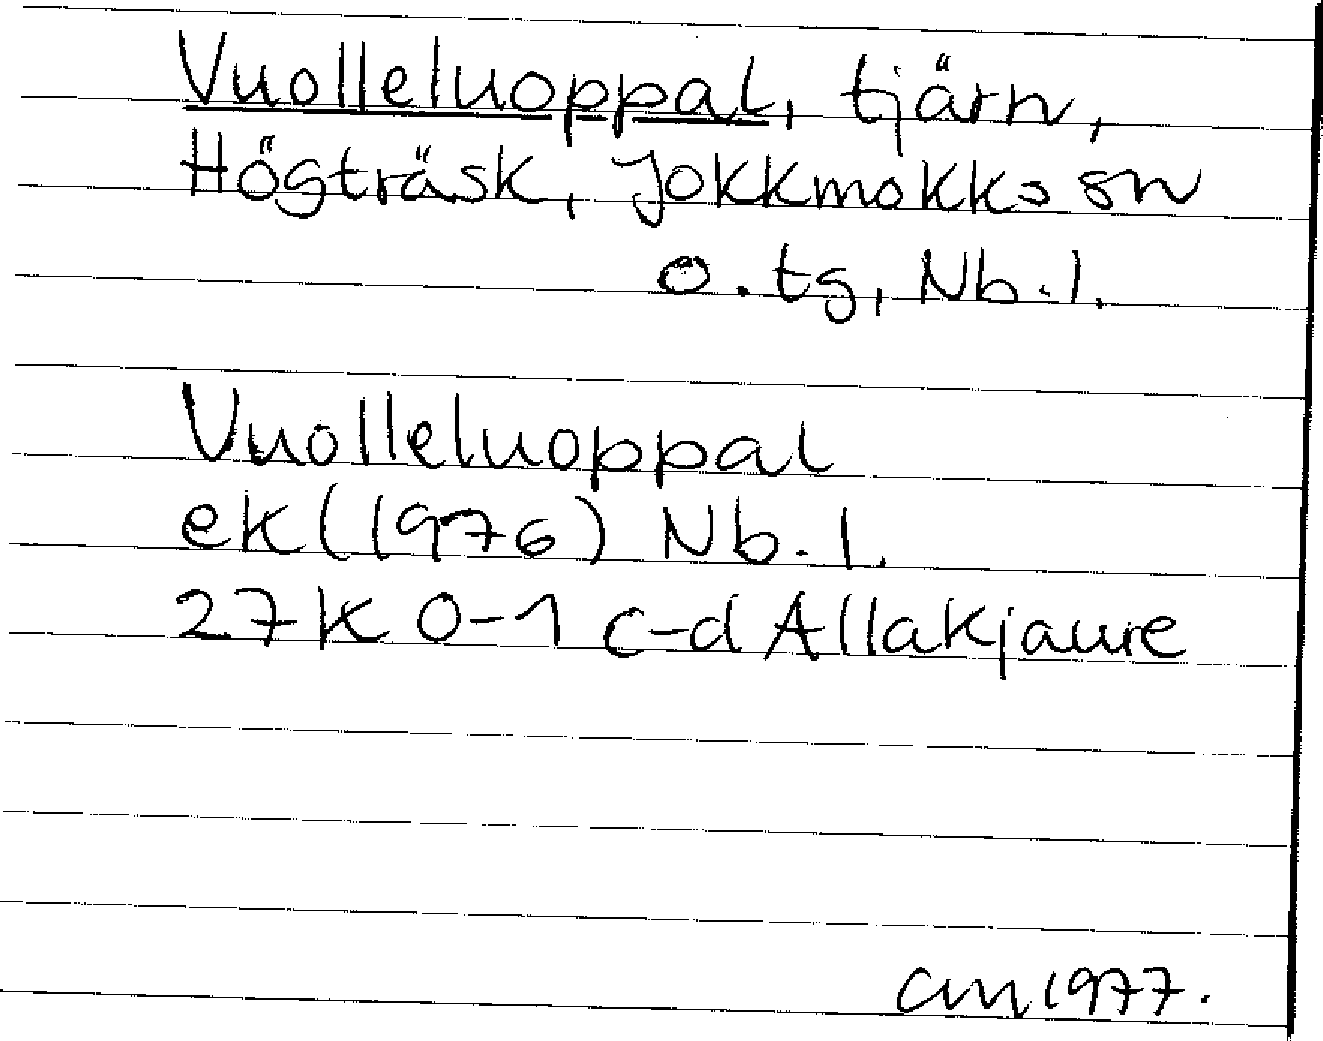 Vuolleluoppal, tjärn,
Högträsk, Jokkmokks sn
o. tg, Nb. l.
Vuolleluoppal
ek (1976) Nb. l.
27K 0-1 c-d Allakjaure
am 1977.